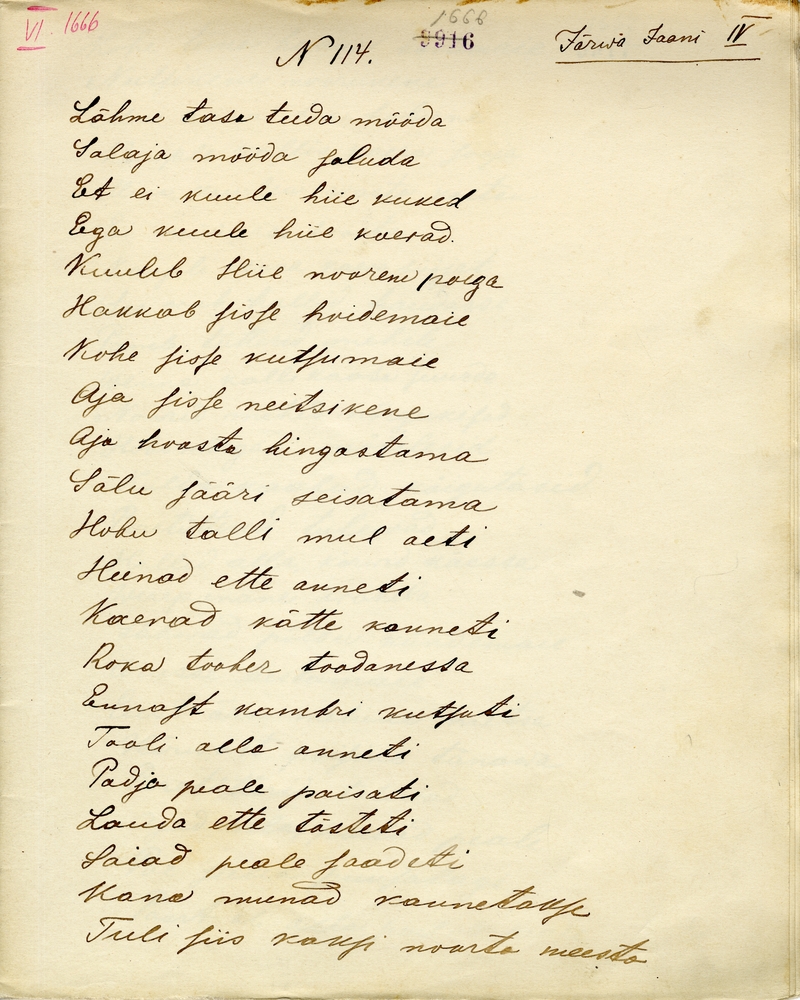 VI 1666
1668
9916
N 114.
Järwa Jaani IV
Lähme tasa teeda mööda
Salaja mööda saluda
Et ei kuule hiie kuked
Ega kuule hiie koerad.
Kuuleb Hiie noorem poega
Hakkab sisse hoidemaie
Kohe sisse kutsumaie
Aja sisse neitsikene
Aja hoosta hingastama
Sälu sääri seisatama
Hobu talli mul aeti
Heinad ette anneti
Kaerad kätte kanneti
Roka toober toodanessa
Ennast kambri kutsuti
Tooli alla anneti
Padja peale paisati
Lauda ette tõsteti
Saiad peale saadeti
Kana munad kannetakse
Tuli siis kaksi noorta meesta